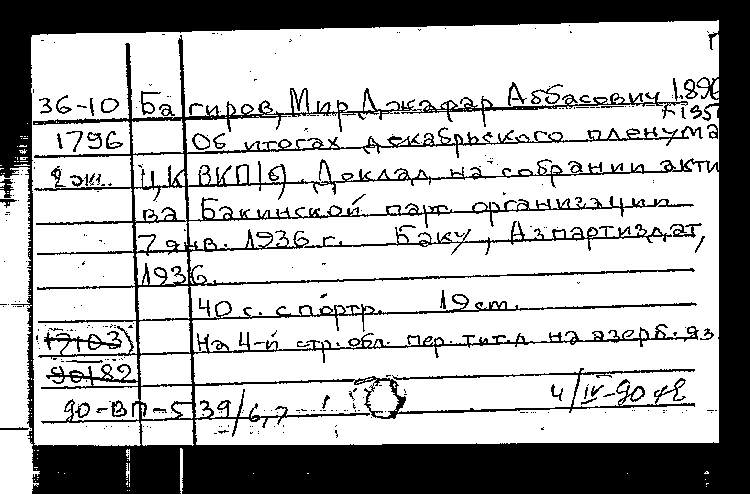 36-10 Багиров, Мир Джафар Аббасович 1896
1796 Об итогах декабрьского пленума
2 эк. ЦК ВКП(б). Доклад на собрании акти
ва Бакинской парт. организации
7 янв. 1936 г. Баку, Азпартиздат,
1936.
40 с. с портр. 19 см.
17103 На 4-й стр. обл. пер. тит. л. на азерб. яз.
90182
90-ВП-5 39/6,7 4/IV-90